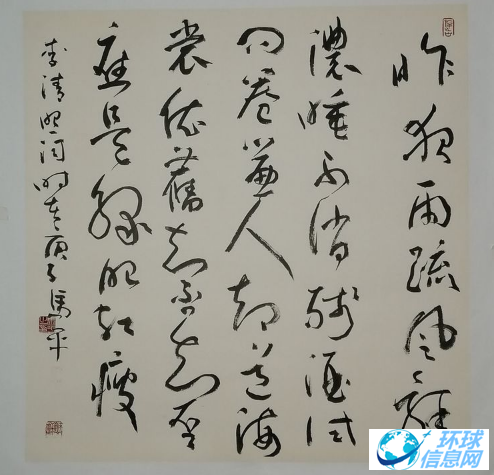 昨夜雨疏风骤
濃睡不消残酒试
问卷簾人却道海
棠依舊知否知否
应是绿肥红瘦
李清照词时在庚子馬平
环球
信息网